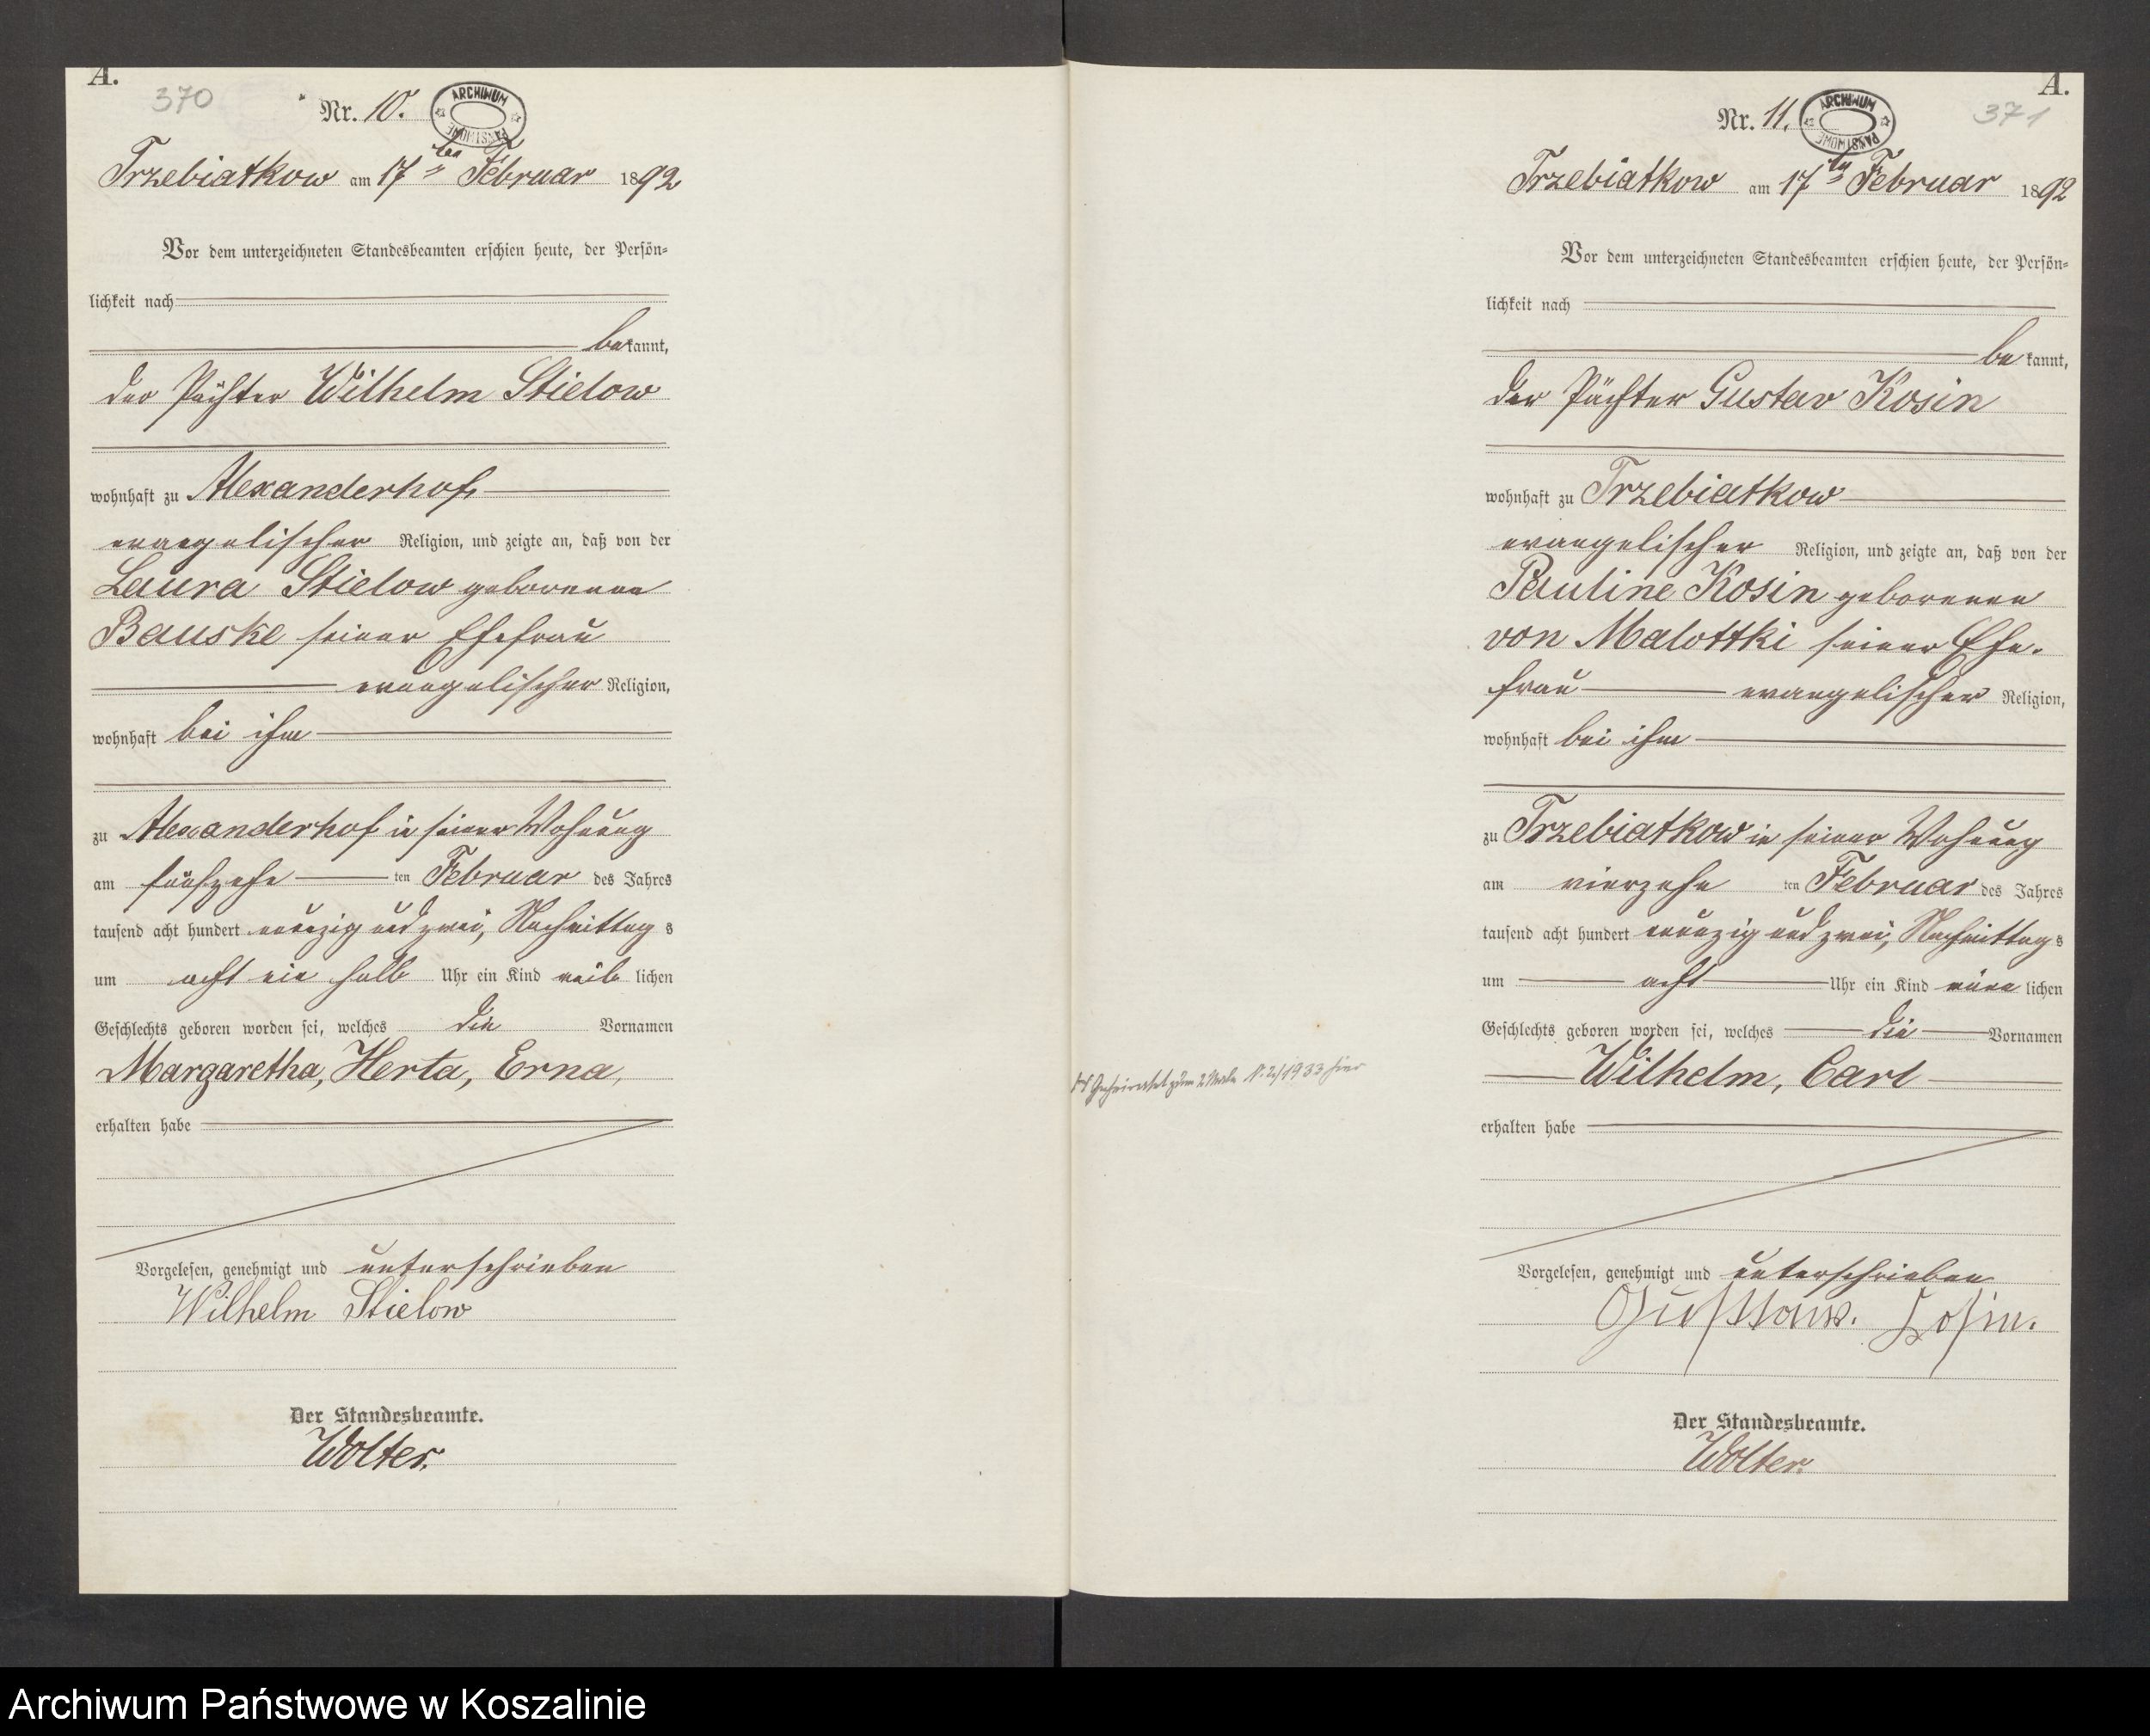 A.
370
Nr. 10.
ARCHIWUM PAŃSTWOWE
Trzebiatkow am 17ten Februar 1892
Vor dem unterzeichneten Standesbeamten erschien heute, der Persön-
lichkeit nach
bekannt,
der Pächter Wilhelm Stielow
wohnhaft zu Alexanderhof,
evangelischer Religion, und zeigte an, daß von der
Laura Stielow geborenen
Bauske seiner Ehefrau
evangelischer Religion,
wohnhaft bei ihm
zu Alexanderhof in seiner Wohnung
am fünfzehn ten Februar des Jahres
tausend acht hundert neunzig und zwei, Nachmittags
um acht ein halb Uhr ein Kind weiblichen
Geschlechts geboren worden sei, welches die Vornamen
Margaretha, Herta, Erna,
erhalten habe
Vorgelesen, genehmigt und unterschrieben
Wilhelm Stielow
Der Standesbeamte.
Wolter.
A.
371
Nr. 11.
ARCHIWUM PAŃSTWOWE
Trzebiatkow am 17ten Februar 1892
Vor dem unterzeichneten Standesbeamten erschien heute, der Persön-
lichkeit nach
bekannt,
der Pächter Gustav Kosin
wohnhaft zu Trzebiatkow
evangelischer Religion, und zeigte an, daß von der
Pauline Kosin geborenen
von Malottki seiner Ehe-
frau evangelischer Religion,
wohnhaft bei ihm
zu Trzebiatkow in seiner Wohnung
am vierzehn ten Februar des Jahres
tausend acht hundert neunzig und zwei, Nachmittags
um acht Uhr ein Kind männlichen
Geschlechts geboren worden sei, welches die Vornamen
Wilhelm, Carl
erhalten habe
Geheiratet zum 2 Male N. 2/1933 hier
Vorgelesen, genehmigt und unterschrieben
Gustaw. Kosin.
Der Standesbeamte.
Wolter.
Archiwum Państwowe w Koszalinie